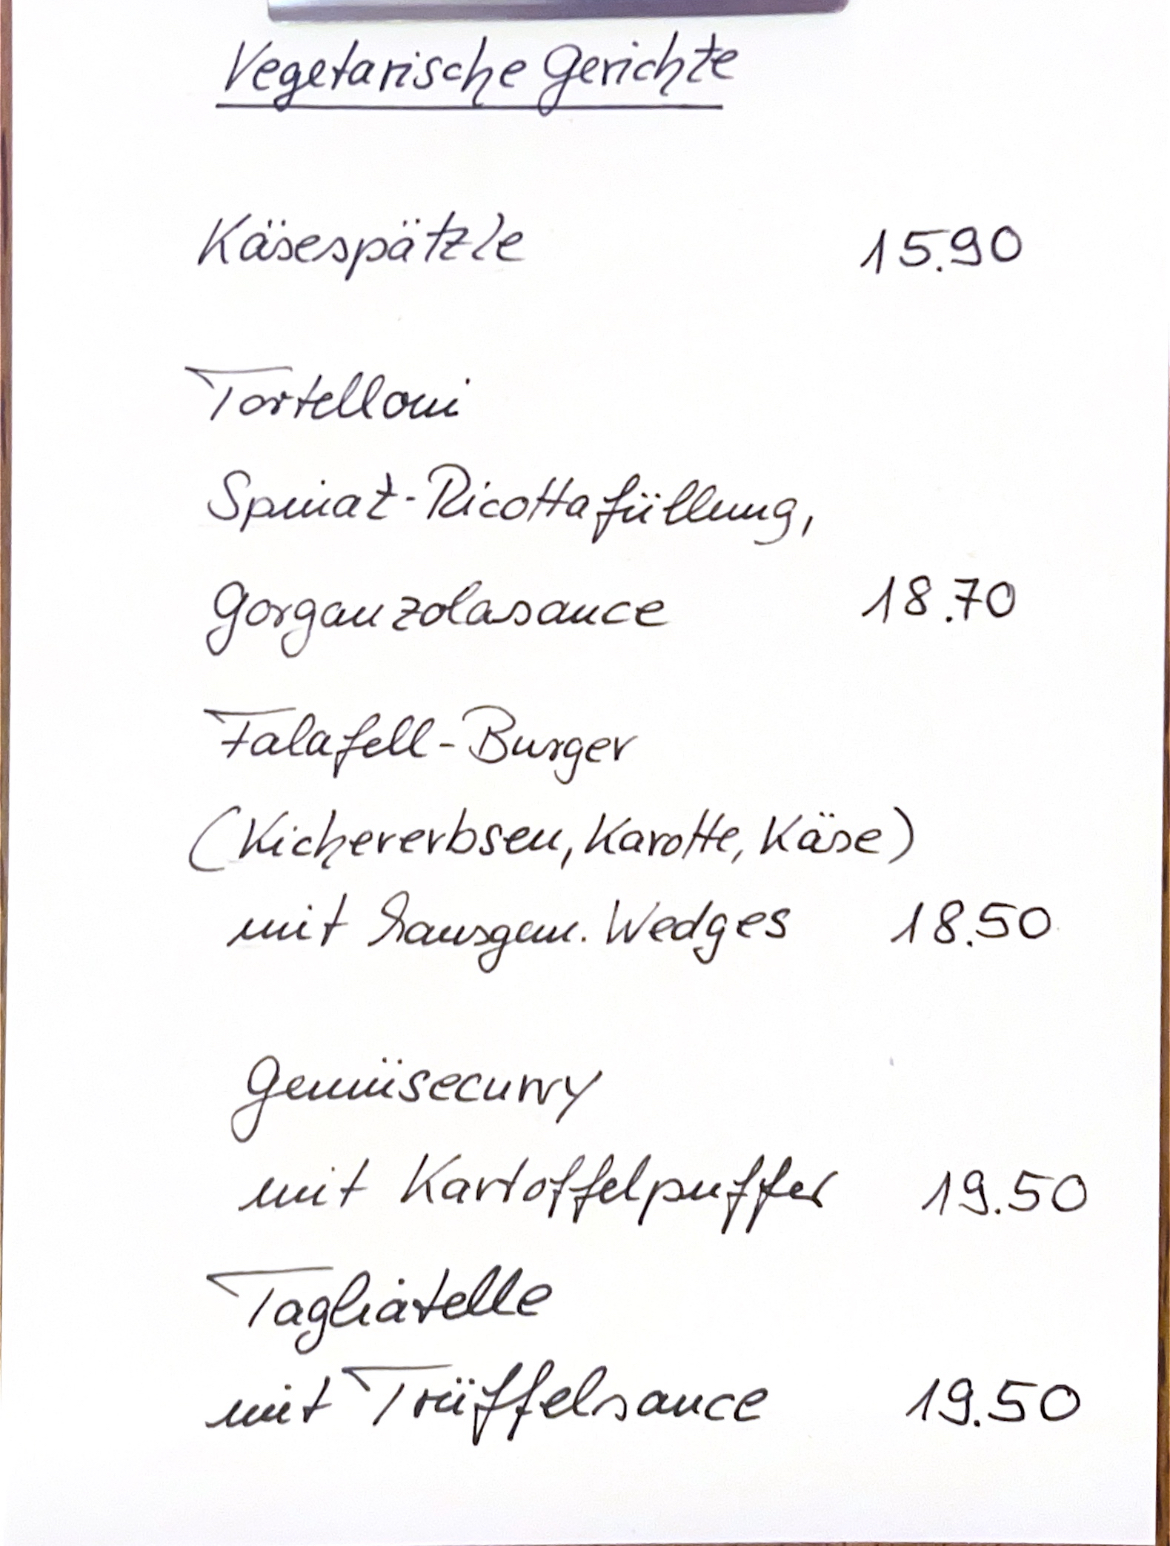 Vegetarische Gerichte
Käsespätzle 15.90
Tortelloni
Spinat-Ricottafüllung,
Gorganzolasauce 18.70
Falafell-Burger
(Kichererbsen, Karotte, Käse)
mit hausgem. Wedges 18.50
Gemüsecurry
mit Kartoffelpuffer 19.50
Tagliatelle
mit Trüffelsauce 19.50